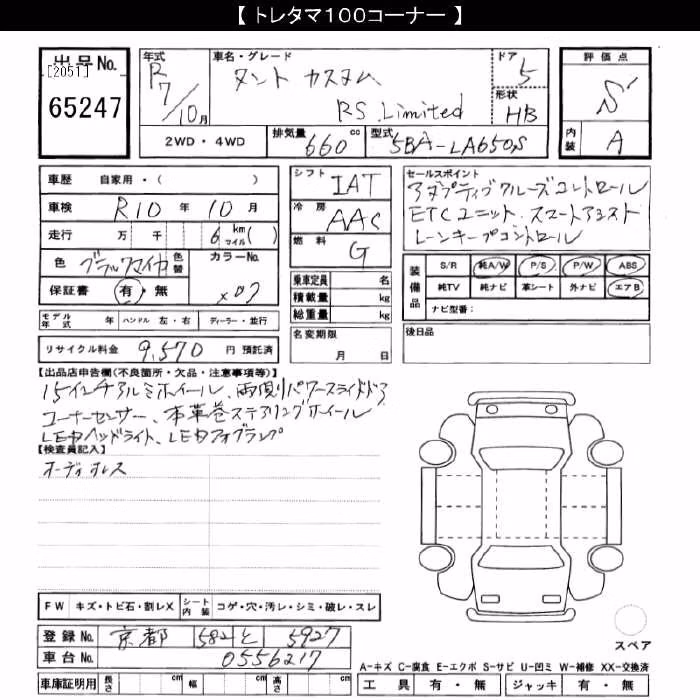 【 トレタマ100コーナー 】
出品No.
[2051]
65247
年式
R7/10月
車名・グレード
タント カスタム
RS Limited
ドア
5
形状
HB
評価点
S
内装
A
2WD・4WD
排気量 660 cc
型式 5BA-LA650S
車歴 自家用・( )
車検 R10 年 10 月
走行 万 千 6 km マイル( )
色 ブラックマイカ 色替 カラーNo. X07
保証書 有・無
モデル年式 年 ハンドル 左・右 ディーラー・並行
リサイクル料金 9,570 円 預託済
シフト IAT
冷房 AAC
燃料 G
乗車定員 名
積載量 kg
総重量 kg
名変期限
月 日
セールスポイント
アダプティブクルーズコントロール
ETCユニット、スマートアシスト
レーンキープコントロール
装備品
S/R 純A/W P/S P/W ABS
純TV 純ナビ 革シート 外ナビ エアB
ナビ型番：
後日品
【出品店申告欄(不良箇所・欠品・注意事項等)】
15インチアルミホイール、両側パワースライドドア
コーナーセンサー、本革巻ステアリングホイール
LEDヘッドライト、LEDフォグランプ
【検査員記入】
オーディオレス
FW キズ・トビ石・割レX シート内装 コゲ・穴・汚レ・シミ・破レ・スレ
登録No. 京都 582 と 5927
車台No. 0556217
車庫証明用 長さ cm 幅 cm 高さ cm
スペア
A-キズ C-腐食 E-エクボ S-サビ U-凹ミ W-補修 XX-交換済
工具 有・無 ジャッキ 有・無